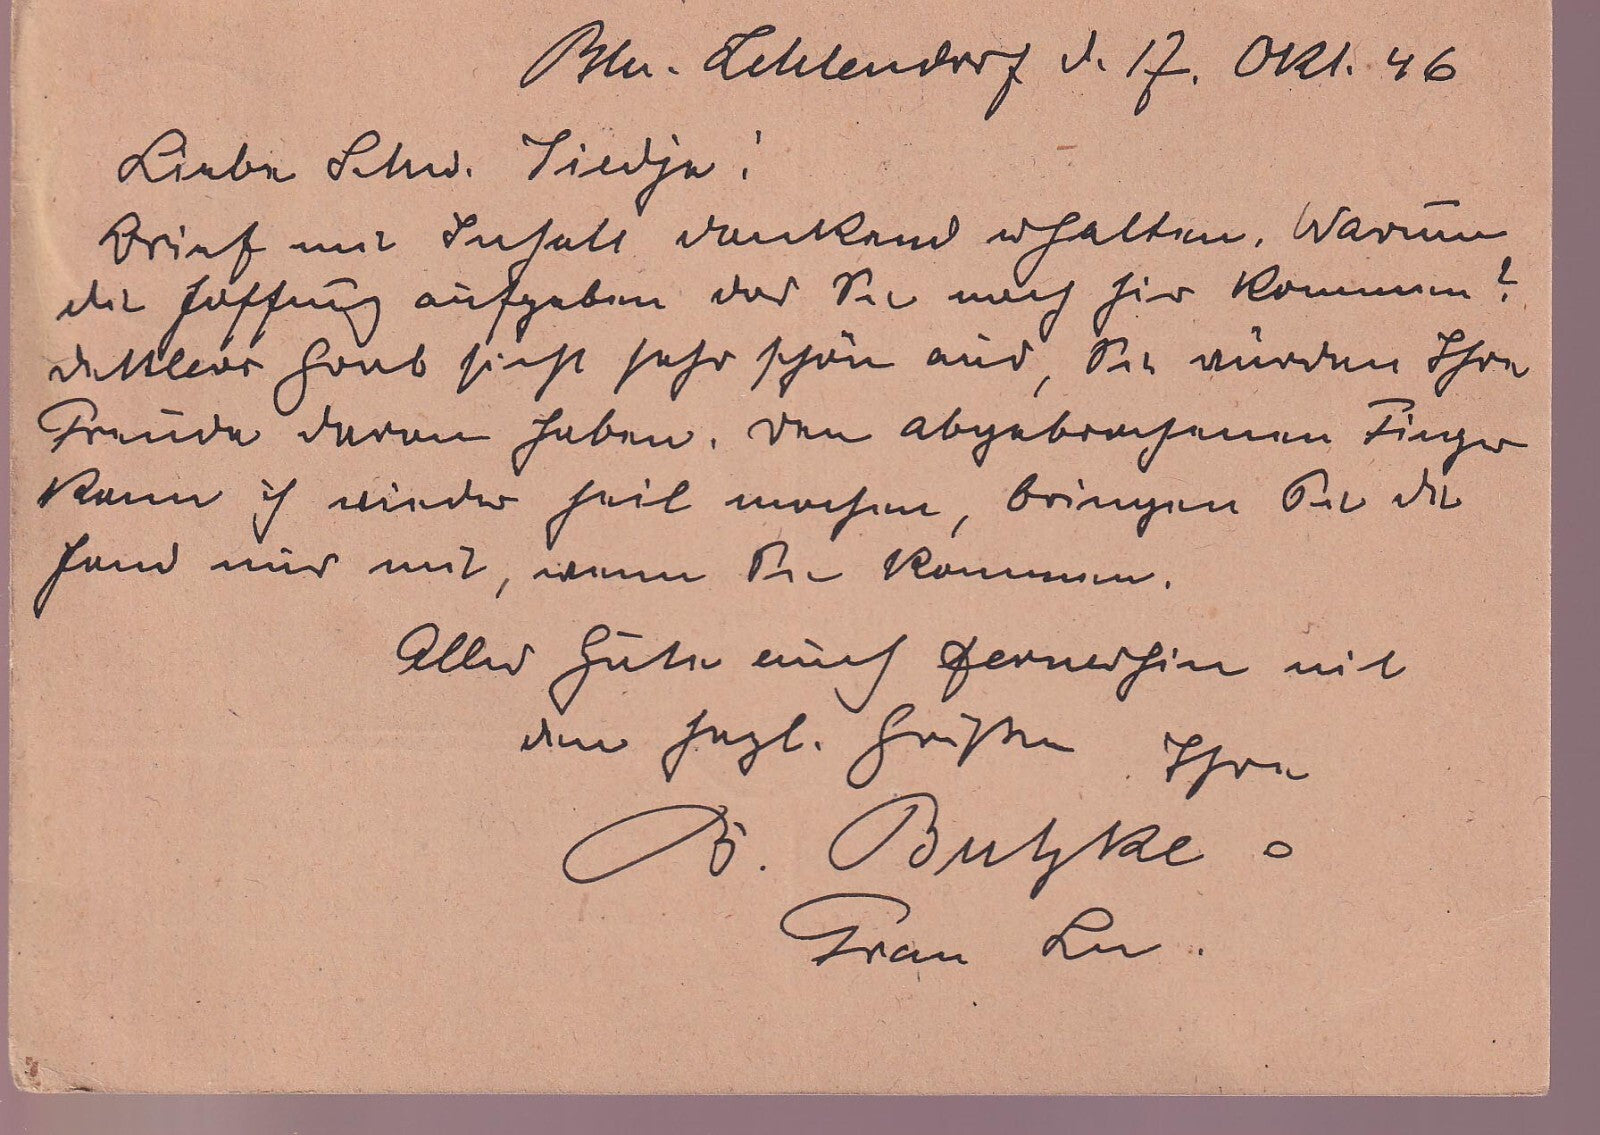 Bln. Zehlendorf d. 17. Okt. 46
Liebe Schw. Tiedje!
Brief mit Inhalt dankend erhalten. Warum
die Hoffnung aufgeben das Sie noch hier kommen?
Dettlers Grab sieht sehr schön aus, Sie würden Ihre
Freude daran haben. Den abgebrochenen Finger
kann ich wieder heil machen, bringen Sie die
Hand nur mit, wenn Sie kommen.
Alles Gute auch fernerhin mit
den herzl. Grüßen Ihre
Butzke
Frau